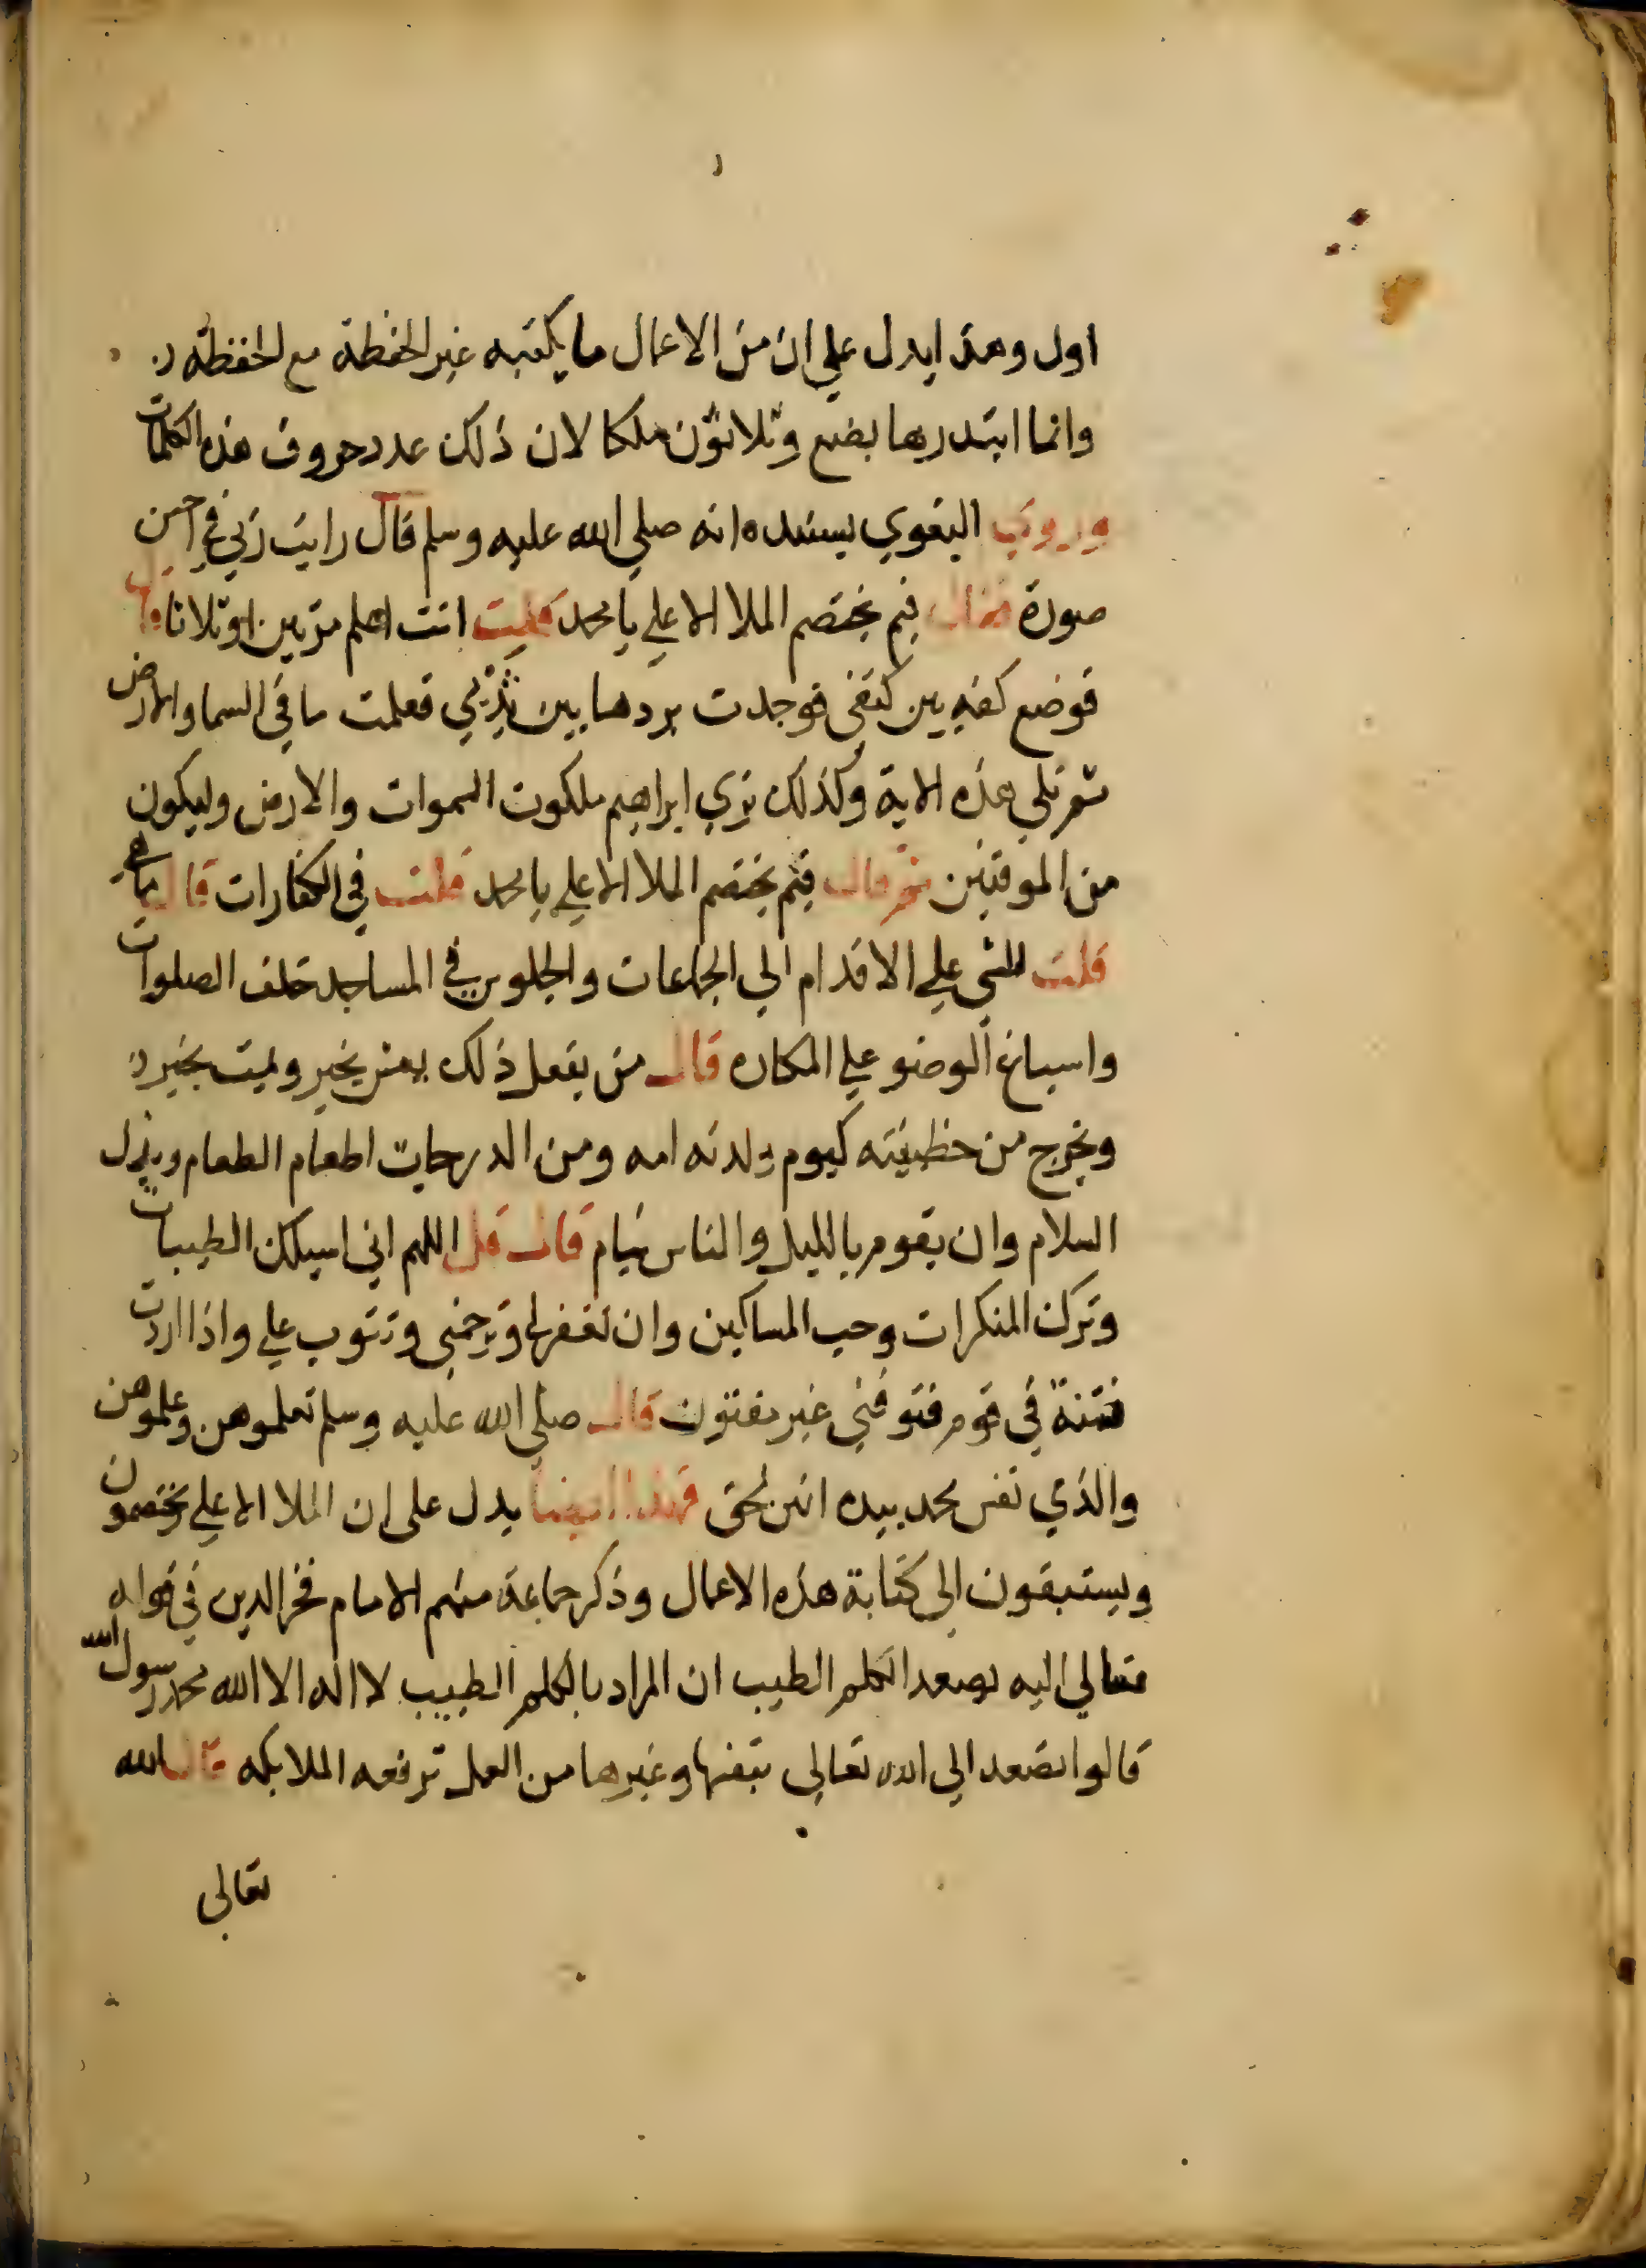 اول وهذا يدل علي ان من الاعمال ما يكتبه غير الحفظة مع الحفظة
وانما ابتدرها بضع وثلاثون ملكا لان ذلك عدد حروف هذه الكلمات
وروي البغوي بسنده انه صلي الله عليه وسلم قال رايت ربي في احسن
صورة فقال فيم يختصم الملا الاعلي يا محمد قلت انت اعلم مرتين او ثلاثا قال
فوضع كفه بين كتفي فوجدت بردها بين ثديي فعلمت ما في السما والارض
ثم تلي هذه الاية وكذلك نري ابراهيم ملكوت السموات والارض وليكون
من الموقنين ثم قال فيم يختصم الملا الاعلي يا محمد قلت في الكفارات قال ما هي
قلت المشي علي الاقدام الي الجماعات والجلوس في المساجد خلف الصلوات
واسباغ الوضو علي المكاره قال من يفعل ذلك يعش بخير ويمت بخير
ويخرج من خطيئته كيوم ولدته امه ومن الدرجات اطعام الطعام وبذل
السلام وان يقوم بالليل والناس نيام قال قل اللهم اني اسيلك الطيبات
وترك المنكرات وحب المساكين وان تغفر لي وترحمني وتتوب علي واذا اردت
فتنة في قوم فتوفني غير مفتون قال صلي الله عليه وسلم تعلموهن وعلموهن
والذي نفس محمد بيده انهن لحق فهذا ايضا يدل علي ان الملا الاعلي يختصمون
ويستبقون الي كتابة هذه الاعمال وذكر جماعة منهم الامام فخر الدين في قوله
تعالي اليه يصعد الكلم الطيب ان المراد بالكلم الطيب لا اله الا الله محمد رسول الله
قالوا تصعد الي الله تعالي بنفسها وغيرها من العمل ترفعه الملايكه قال الله
تعالى